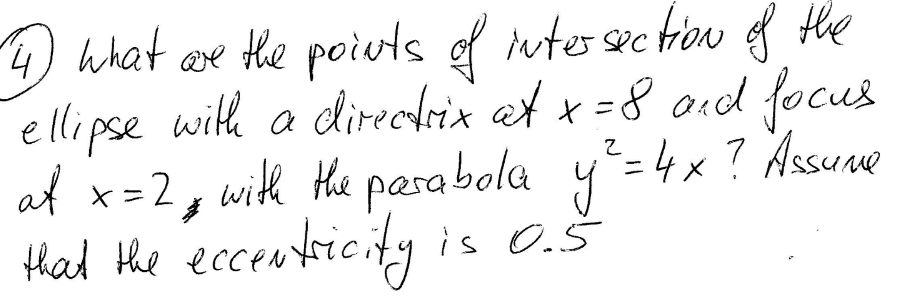 4) What are the points of intersection of the
ellipse with a directrix at x = 8 and focus
at x = 2, with the parabola y² = 4x? Assume
that the eccentricity is 0.5